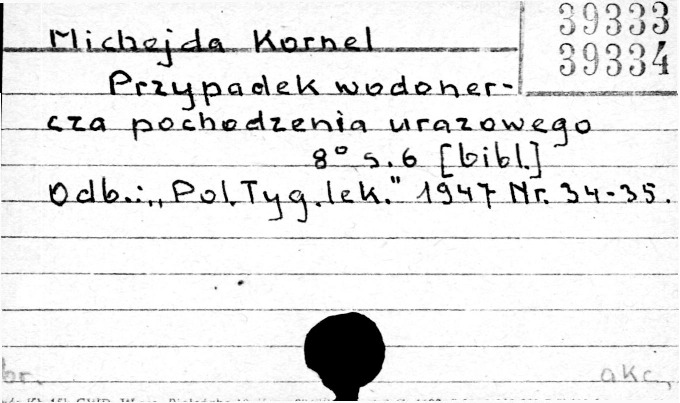 39333
Michejda Kornel
39334
Przypadek wodoner-
cza pochodzenia urazowego
8° s. 6 [bibl.]
Odb.: „Pol. Tyg. lek." 1947 Nr. 34-35.
br. akc.